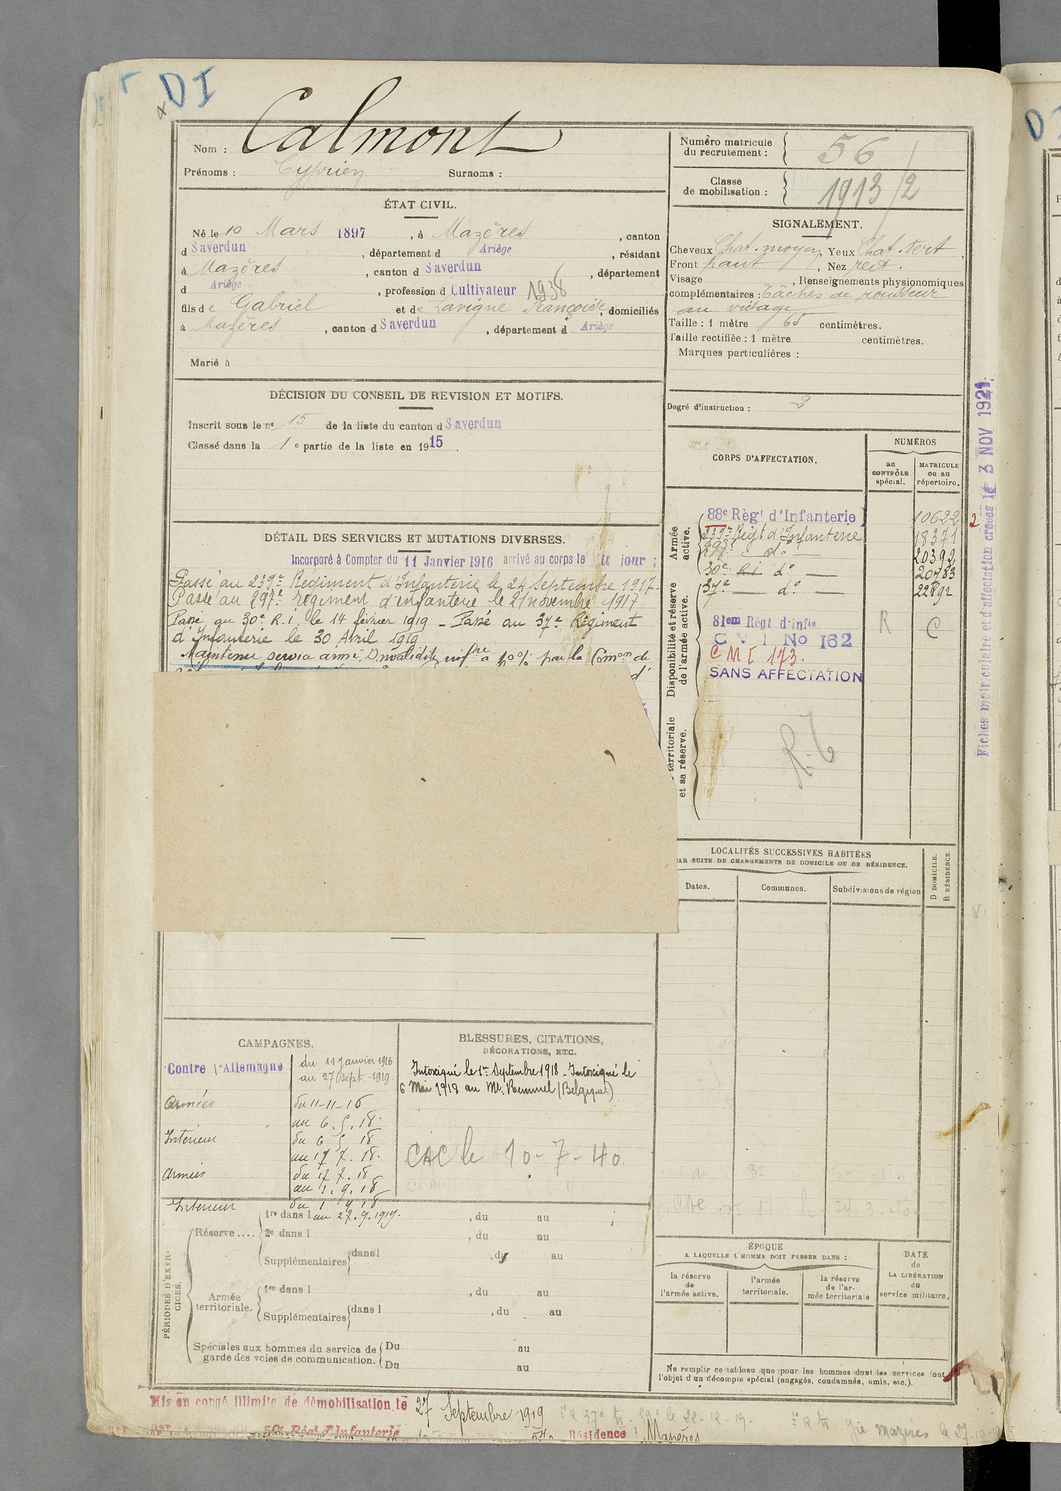 DI
Nom : Calmont
Prénoms : Cyprien Surnoms :
Numéro matricule
du recrutement : 56
Classe
de mobilisation : 1913/2
ÉTAT CIVIL.
Né le 10 Mars 1897, à Mazères, canton
d Saverdun, département d Ariège, résidant
à Mazères, canton d Saverdun, département
d Ariège, profession d Cultivateur 1938
fils de Gabriel et de Lavigne Françoise, domiciliés
à Mazères, canton d Saverdun, département d Ariège
Marié à
SIGNALEMENT.
Cheveux Chat. moyen, Yeux Chat. vert
Front haut, Nez rect.
Visage , Renseignements physionomiques
complémentaires : Tâches de rousseur
au visage
Taille : 1 mètre 65 centimètres.
Taille rectifiée : 1 mètre centimètres.
Marques particulières :
Degré d'instruction : 2
DÉCISION DU CONSEIL DE REVISION ET MOTIFS.
Inscrit sous le n° 15 de la liste du canton d Saverdun
Classé dans la 1e partie de la liste en 1915.
CORPS D'AFFECTATION.
NUMÉROS
AU CONTRÔLE spécial.
MATRICULE OU AU répertoire.
Armée active.
88e Règt d'Infanterie 10622
239e Regt d'Infanterie 18371
297e d° 20392
30e RI d° 20783
37e d° 22892
Disponibilité et réserve de l'armée active.
81em Régt d'Infie R C
C V I No 162
C M I 173.
SANS AFFECTATION
territoriale et sa réserve.
Fiches matriculaire et d'affectation créées le 3 NOV 1921.
DÉTAIL DES SERVICES ET MUTATIONS DIVERSES.
Incorporé à Compter du 11 Janvier 1916 arrivé au corps le dit jour :
Passé au 239e Régiment d'Infanterie le 24 Septembre 1917.
Passé au 297e régiment d'infanterie le 21 novembre 1917
Passé au 30e R.I. le 14 février 1919 - Passé au 37e Régiment
d'Infanterie le 30 Avril 1919
Maintenu service armé. Invalidité infre à 10% par la Comon de
LOCALITÉS SUCCESSIVES HABITÉES
PAR SUITE DE CHANGEMENTS DE DOMICILE OU DE RÉSIDENCE.
Dates.
Communes.
Subdivisions de région
D DOMICILE.
R RÉSIDENCE.
CAMPAGNES.
Contre l'Allemagne du 11 Janvier 1916
au 27 Sept. 1919
Armées du 11-11-16
au 6.5.18.
Intérieur du 6 5 18
au 17 7. 18.
Armées du 17.7.18
au 1.9.18
Intérieur du 1 9 18
au 27.9.1919.
BLESSURES, CITATIONS,
DÉCORATIONS, ETC.
Intoxiqué le 1er Septembre 1918 - Intoxiqué le
6 Mai 1918 au Mt. Kemmel (Belgique)
CAC le 10-7-40.
PÉRIODES D'EXERCICES.
Réserve....
1re dans l , du au
2e dans l , du au
Supplémentaires dans l , du au
Armée territoriale.
1re dans l , du au
Supplémentaires dans l , du au
Spéciales aux hommes du service de
garde des voies de communication.
Du au
Du au
ÉPOQUE
A LAQUELLE L'HOMME DOIT PASSER DANS :
la réserve de l'armée active.
l'armée territoriale.
la réserve de l'armée territoriale
DATE de LA LIBÉRATION du service militaire.
Ne remplir ce tableau que pour les hommes dont les services font
l'objet d'un décompte spécial (engagés, condamnés, omis, etc.).
Mis en congé illimité de démobilisation le 27 Septembre 1919
Régt d'Infanterie Résidence Mazères